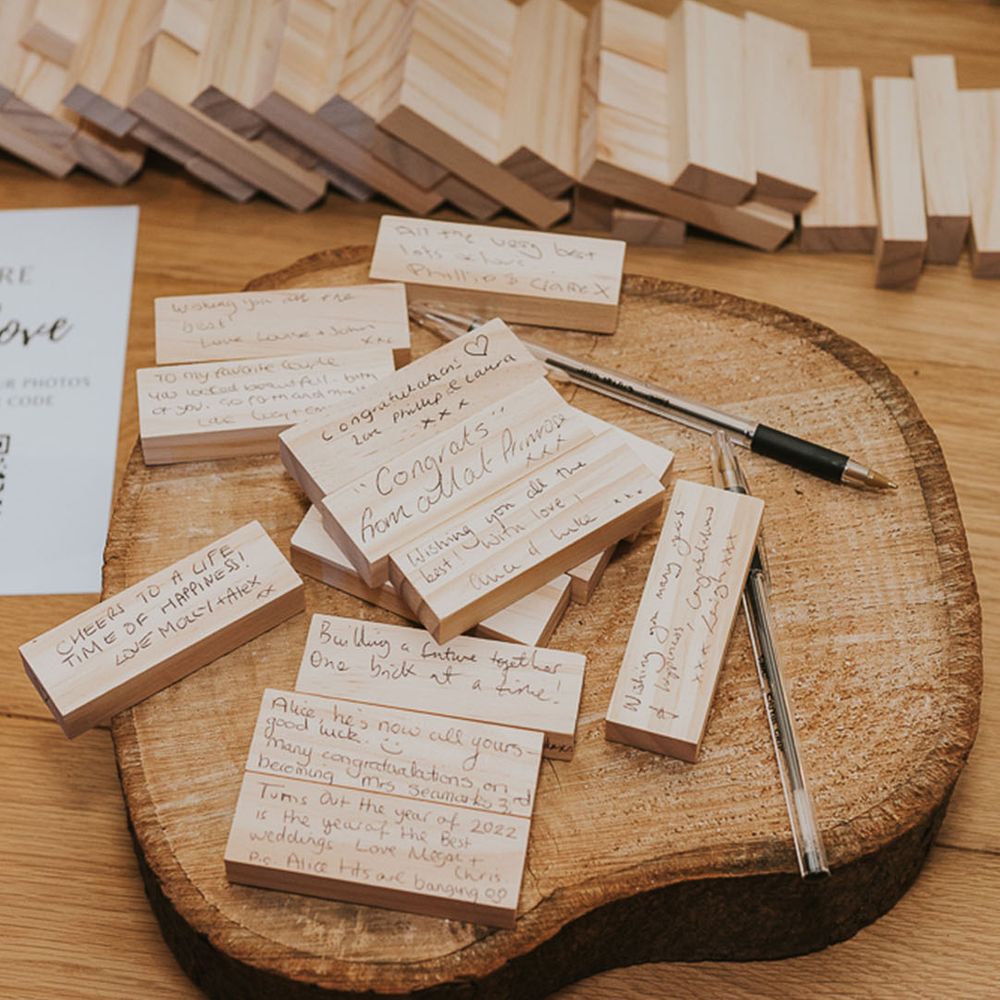 RE
ove
R PHOTOS
CODE
All the very best
lots of love
Phillip & Claire x
Wishing you all the
best!
Love Louise + John
xxx
To my favorite couple
you looked beautiful - both
of you. So
Love Lucy +
Congratulations!
Love Phillip & Laura
xxx
"Congrats"
from all at Primrose
xxx
Wishing you all the
best! With love!
and Luke xxx
CHEERS TO A LIFE
TIME OF HAPPINES!
LOVE MOLLY + Alex
xx
Wishing you many years
of happiness, Congratulations
xxx Leigh xxxx
Building a future together
One brick at a time!
Alice, he's now all yours -
good luck. ☺
many congratulations on
becoming Mrs Seamarks 3rd
Turns Out the year of 2022
is the year of the Best
weddings Love Megan +
Chris
P.S. Alice tits are banging